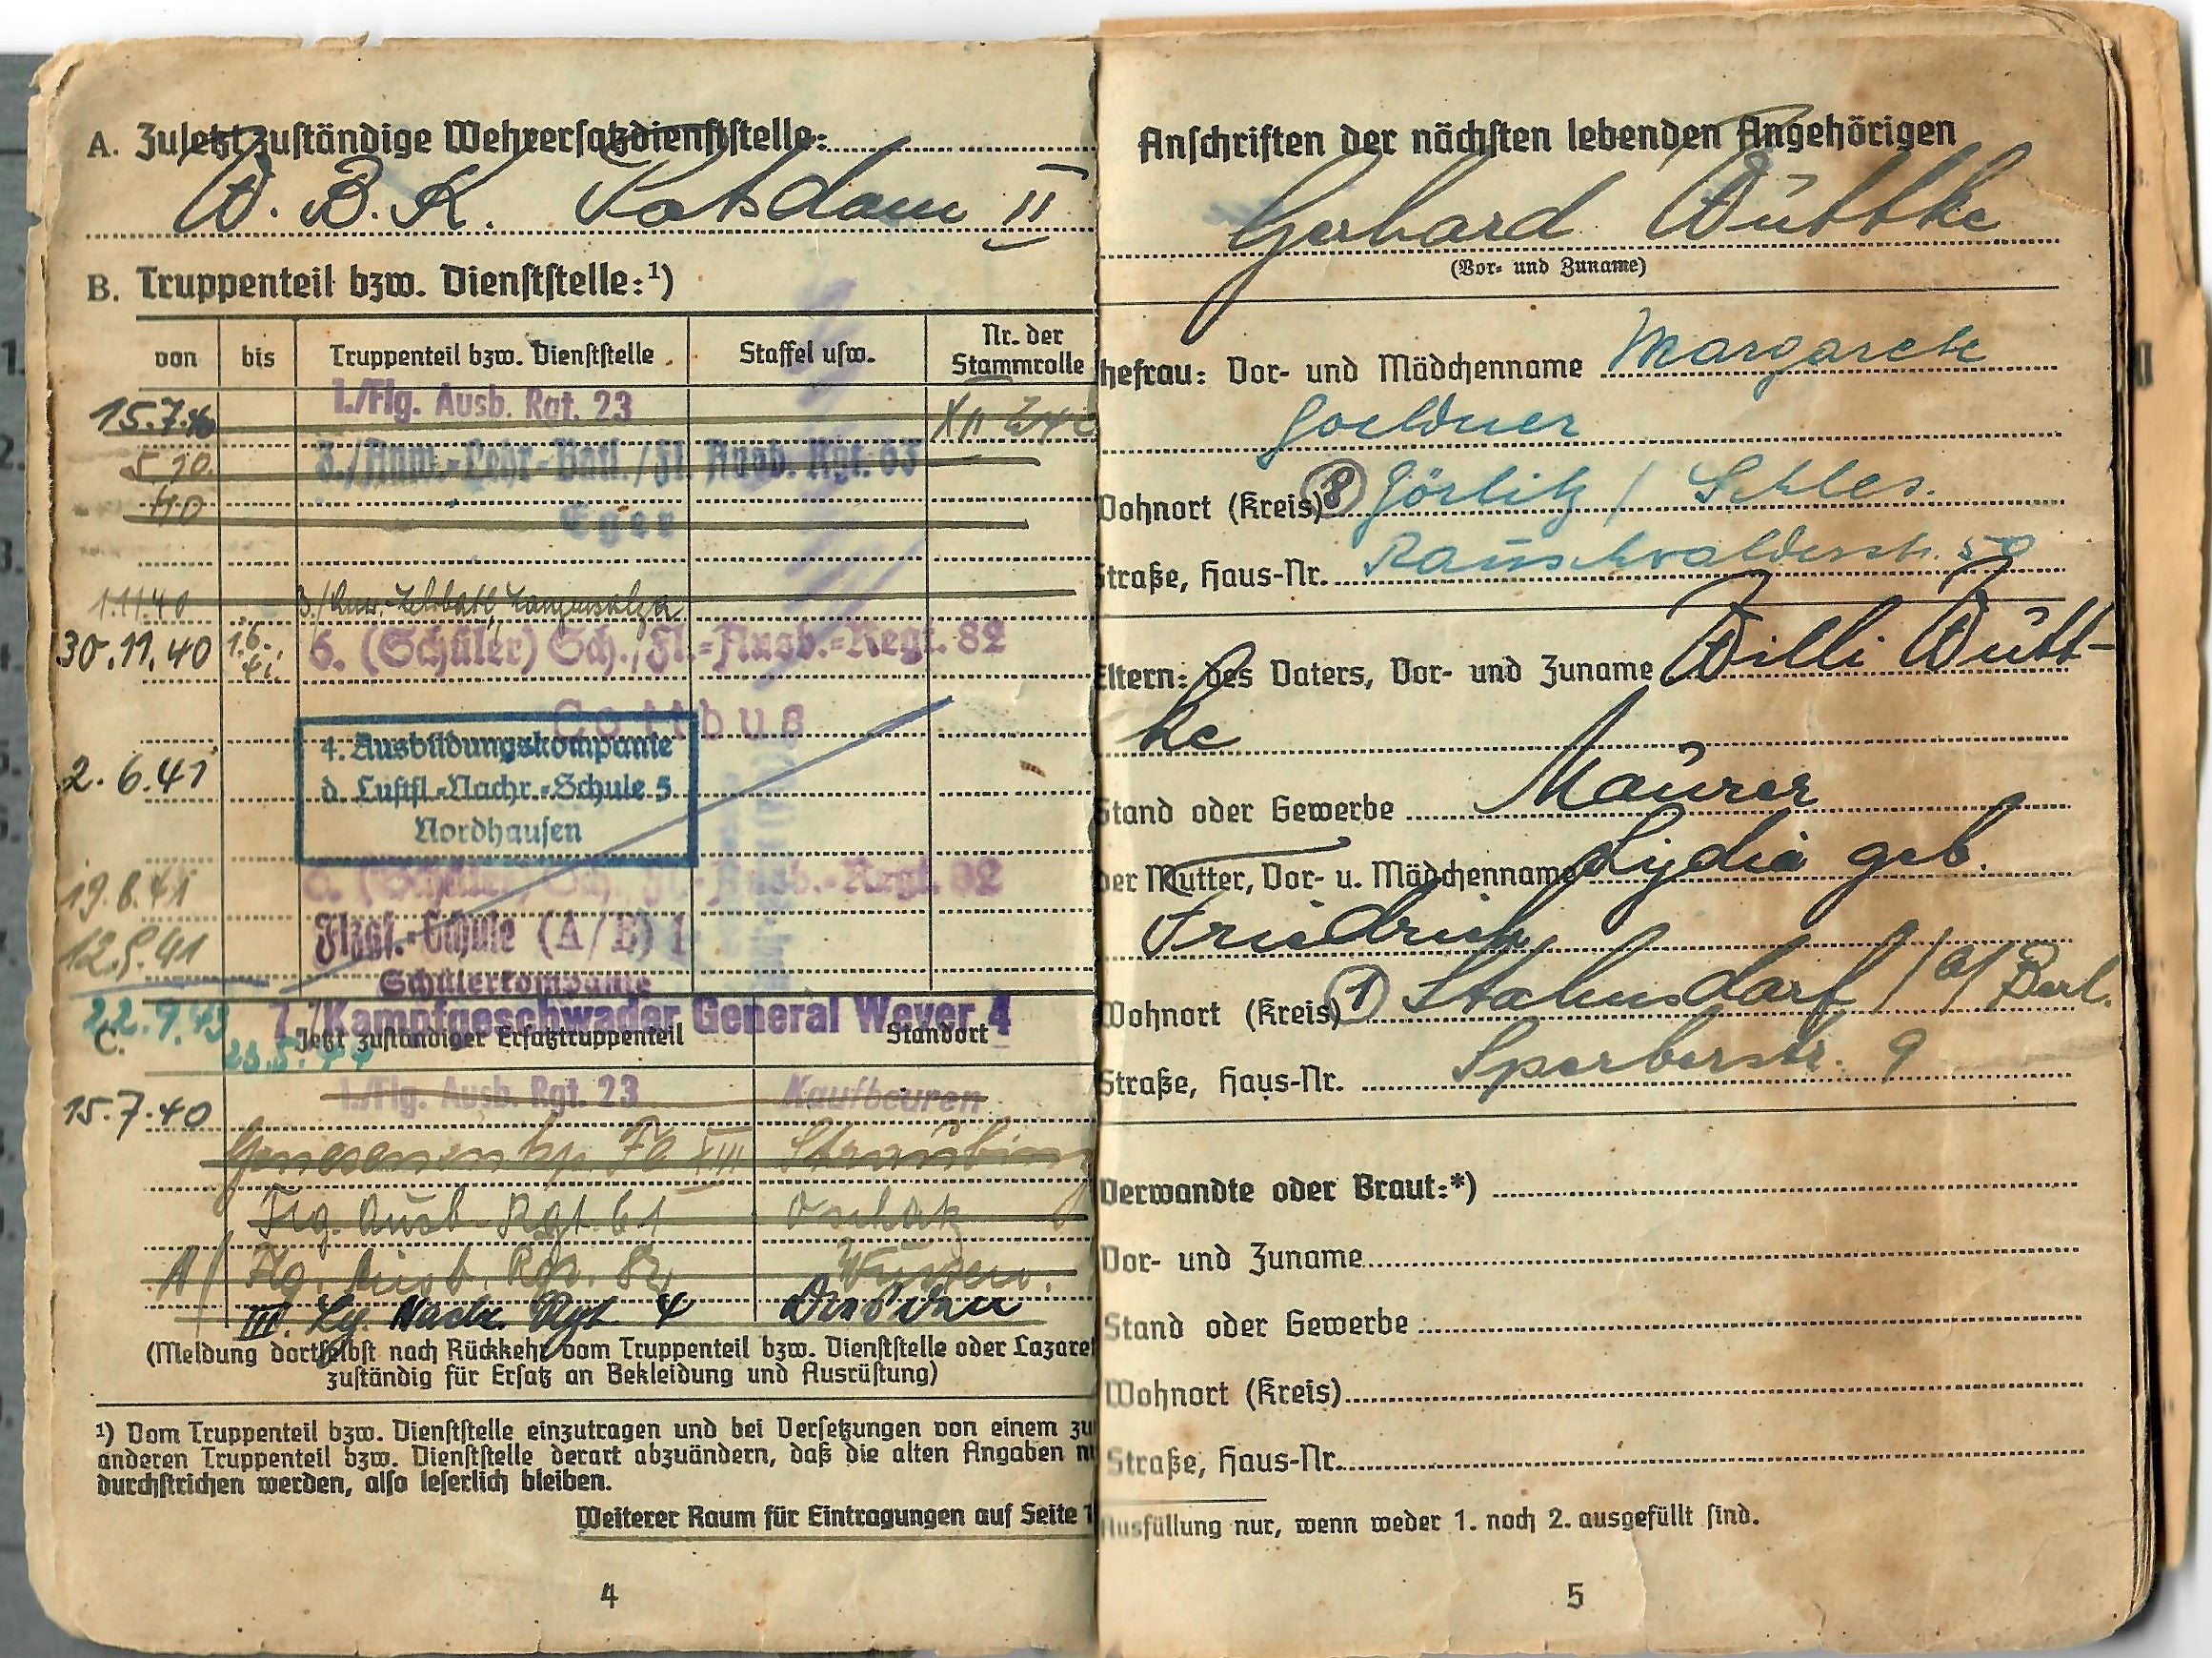 A. Zuletzt zuständige Wehrersatzdienststelle:
W. B. K. Potsdam II
B. Truppenteil bzw. Dienststelle:¹)
von bis Truppenteil bzw. Dienststelle Staffel usw. Nr. der Stammrolle
15.7.40 1./Flg. Ausb. Rgt. 23 XII
5.10. 3./Anw.-Lehr-Batl./Fl. Ausb. Rgt. 63
40 Eger
1.11.40 3./Anw.
30.11.40 1.6. 41. 6. (Schüler) Sch./Fl.-Ausb.-Regt. 82
Cottbus
2.6.41 4. Ausbildungskompanie
d. Luftfl.-Nachr.-Schule 5
Nordhausen
19.8.41 (Schüler) Sch. Fl.-Ausb.-Regt. 82
12.9.41 Flzgf.-Schule (A/B) 1
Schülerkompanie
22.9.43 7./Kampfgeschwader General Wever 4
C. Jetzt zuständiger Ersatztruppenteil Standort
15.7.40 1./Flg. Ausb. Rgt. 23 Kaufbeuren
Genesenenkp. XIII Straubing
Flg. Ausb. Rgt. 61 Oschatz
Flg. Ausb. Rgt. 82 Wurzen.
III. Lg. Nachr. Rgt. 4 Dresden
(Meldung dortselbst nach Rückkehr vom Truppenteil bzw. Dienststelle oder Lazaret
zuständig für Ersatz an Bekleidung und Ausrüstung)
¹) Vom Truppenteil bzw. Dienststelle einzutragen und bei Versetzungen von einem zu
anderen Truppenteil bzw. Dienststelle derart abzuändern, daß die alten Angaben nu
durchstrichen werden, also leserlich bleiben.
Weiterer Raum für Eintragungen auf Seite 1
4
Anschriften der nächsten lebenden Angehörigen
Gerhard Wüttke
(Vor- und Zuname)
hefrau: Vor- und Mädchenname Margarete
Goeldner
Wohnort (Kreis) 8 Görlitz / Schles.
Straße, Haus-Nr. Rauschwalderstr. 50
Eltern: des Vaters, Vor- und Zuname Willi Wütt-
ke
Stand oder Gewerbe Maurer
der Mutter, Vor- u. Mädchenname Lydia geb.
Friedrich
Wohnort (Kreis) 1 Stahnsdorf / b/ Berl.
Straße, Haus-Nr. Sperberstr. 9
Verwandte oder Braut:*)
Vor- und Zuname
Stand oder Gewerbe
Wohnort (Kreis)
Straße, Haus-Nr.
Ausfüllung nur, wenn weder 1. noch 2. ausgefüllt sind.
5